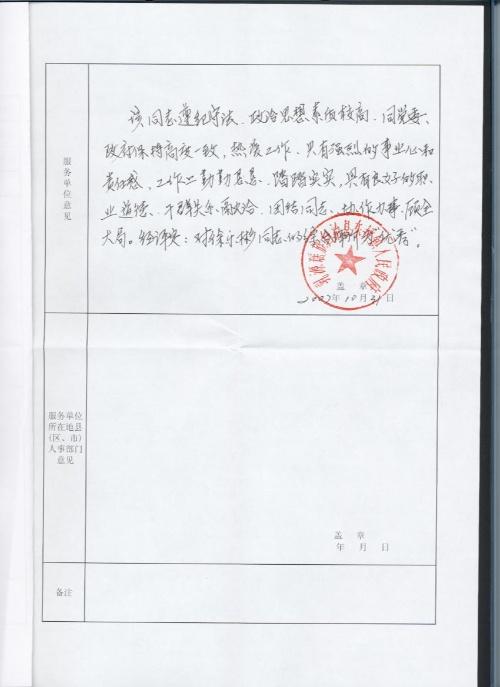 服务单位意见
该同志遵纪守法、政治思想素质较高、同党委、
政府保持高度一致,热爱工作、具有强烈的事业心和
责任感、工作上勤勤恳恳、踏踏实实、具有良好的职
业道德、干群关系融洽、团结同志、协作办事、顾全
大局。经评定:对徐 彬同志的综合评价为“优秀”。
人民政府
盖 章
2007年10月31日
服务单位
所在地县
(区、市)
人事部门
意见
盖 章
年 月 日
备注